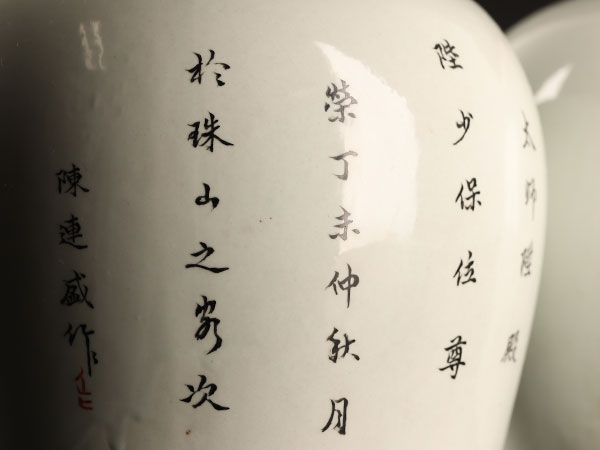 太師陛殿
陛少保位尊
榮丁未仲秋月
於珠山之客次
陳連盛作